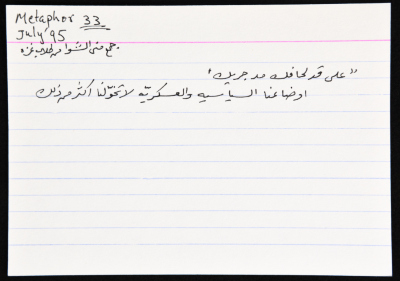 Metaphor 33
July '95
جمع منى الشوا من طلاب غزه
"على قد لحافك مد جريك"
اوضاعنا السياسيه والعسكريّه لا تخوّلنا اكثر من ذلك